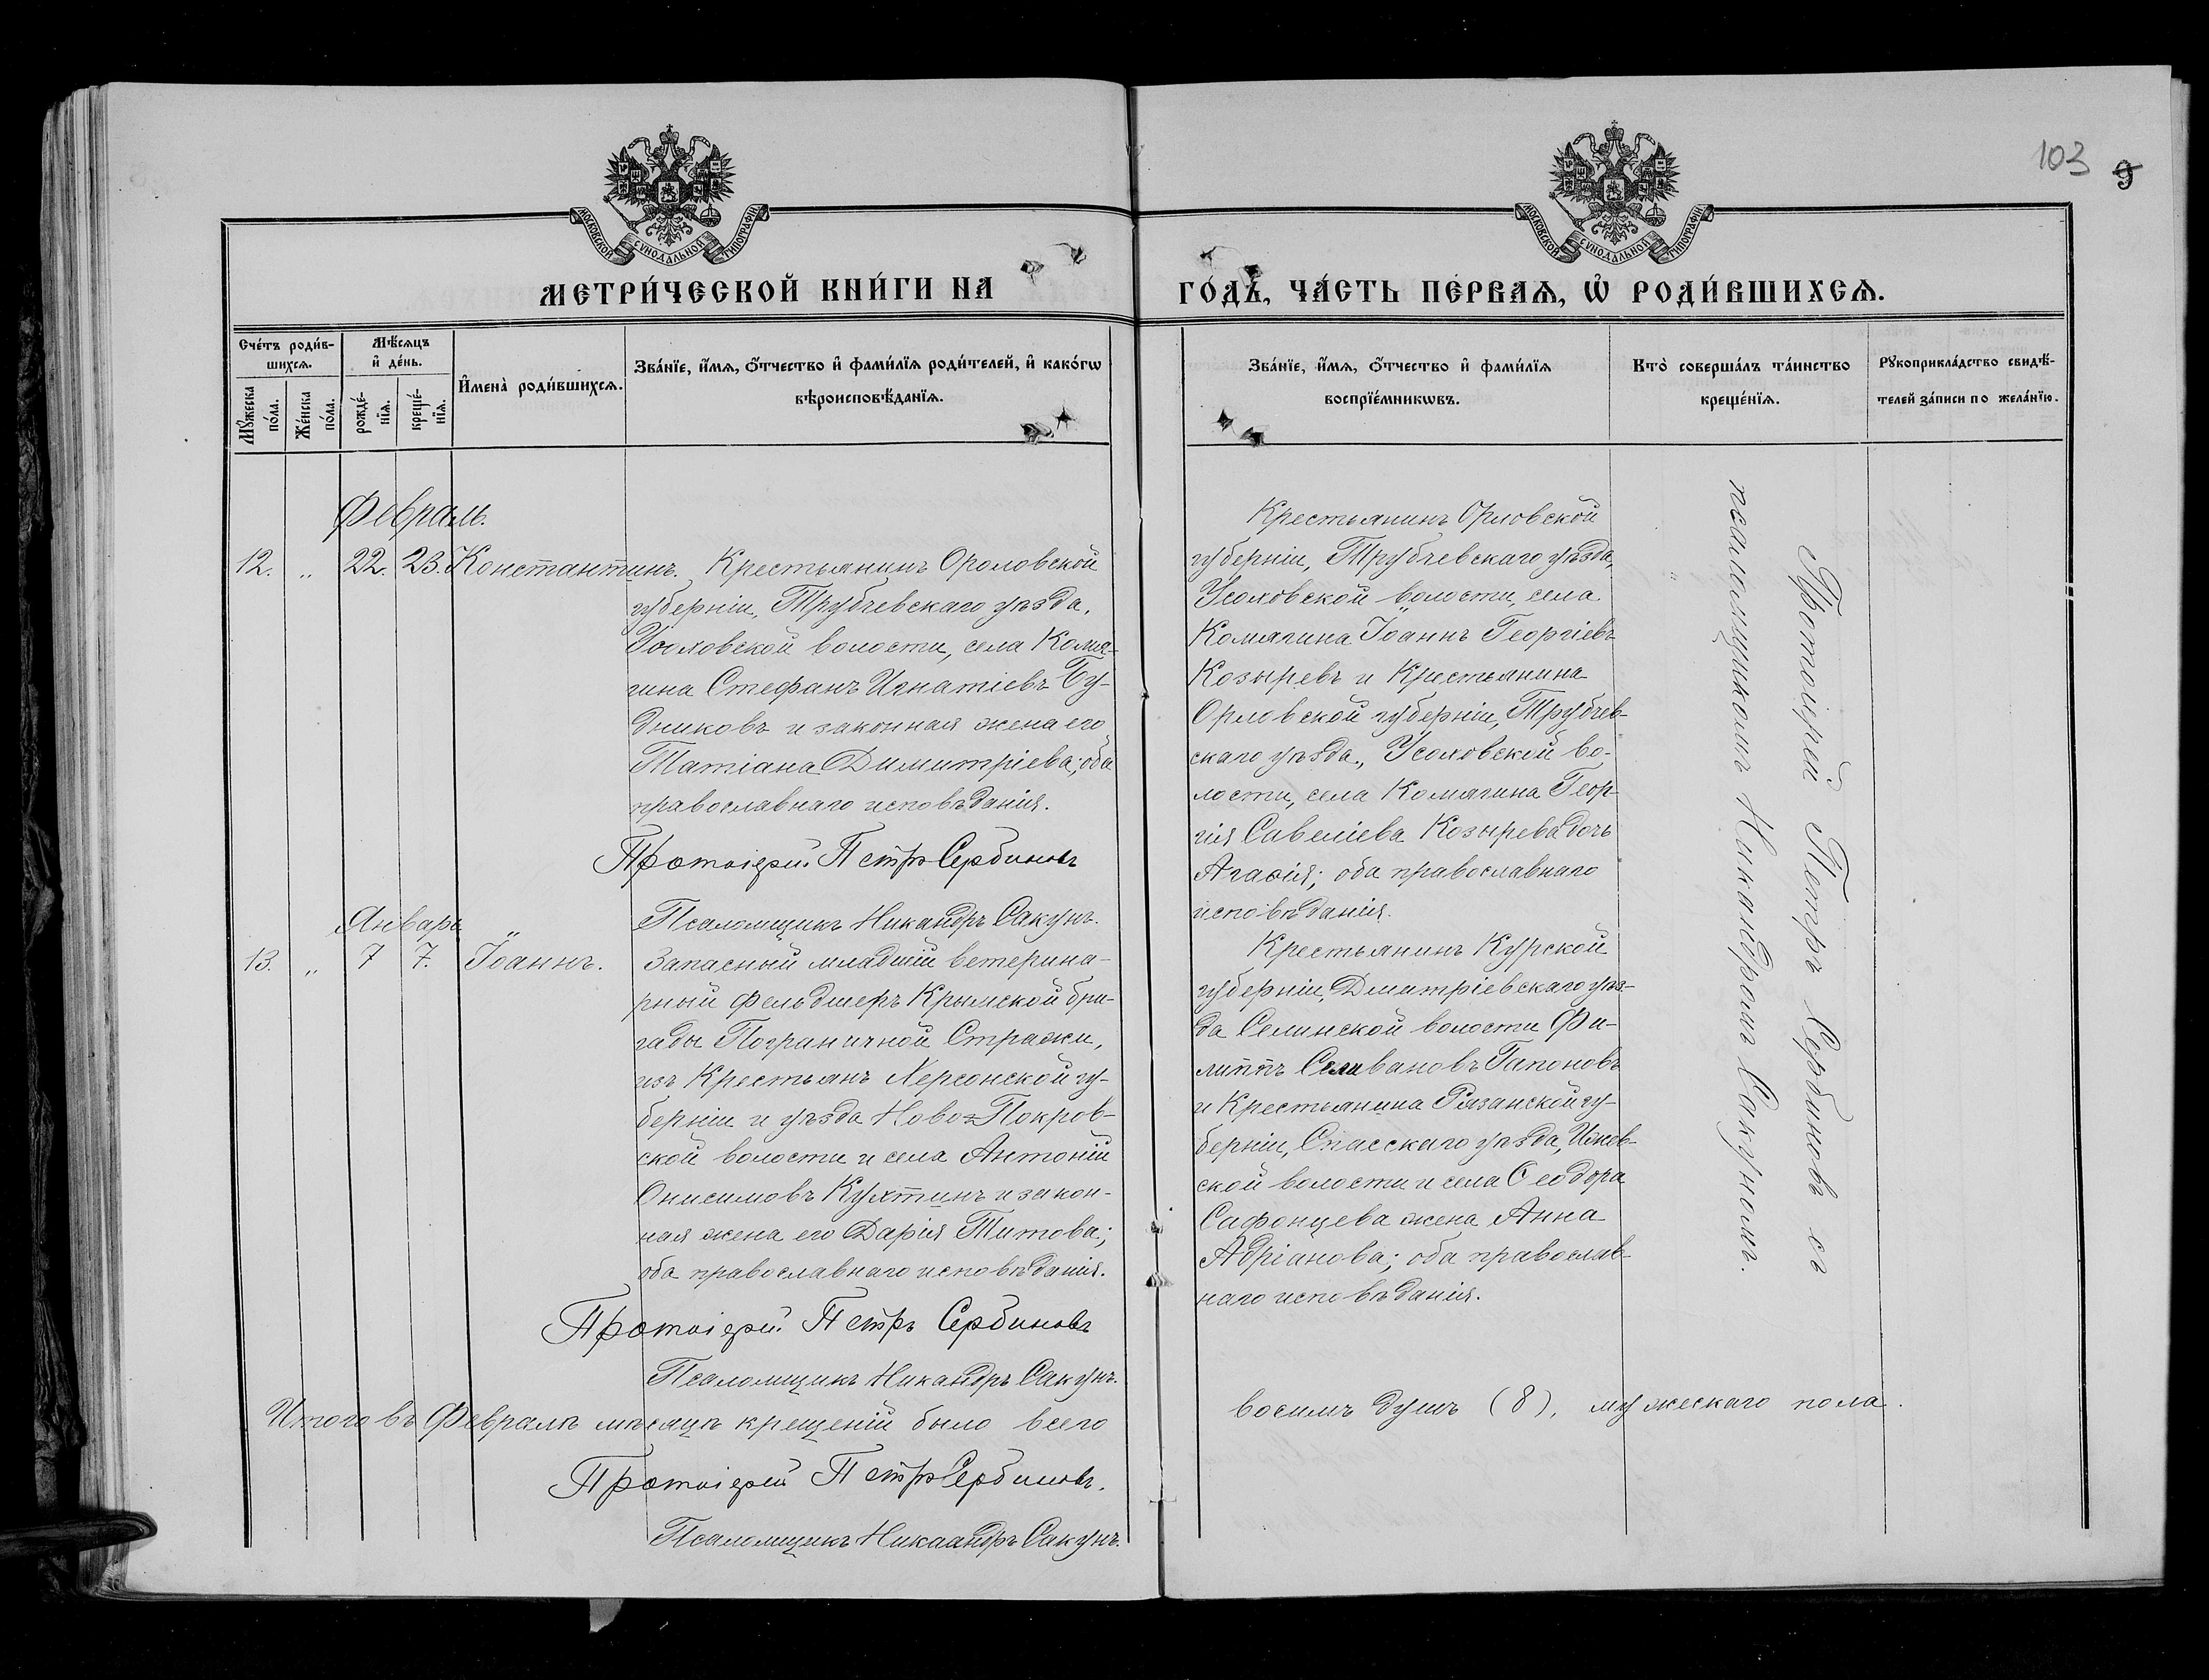 103 9
МОСКОВСКОЙ СѴНОДАЛЬНОЙ ТИПОГРАФІИ
МОСКОВСКОЙ СѴНОДАЛЬНОЙ ТИПОГРАФІИ
МЕТРИ́ЧЕСКОЙ КНИ́ГИ НА
ГО́ДЪ, ЧА́СТЬ ПЕ́РВАѦ, Ѡ҆ РОДИ́ВШИХСѦ.
Сче́тъ роди́в-
шихсѧ.
Мꙋ́жеска по́ла.
Же́нска по́ла.
Мѣ́сѧцъ
и҆ де́нь.
рожде́-
нїѧ.
креще́-
нїѧ.
И҆мена̀ роди́вшихсѧ.
Зва́нїе, и҆́мѧ, ѻ҆́тчество и҆ фами́лїѧ роди́телей, и҆ како́гѡ
вѣроисповѣ́данїѧ.
Зва́нїе, и҆́мѧ, ѻ҆́тчество и҆ фами́лїѧ
воспрїе́мникѡвъ.
Кто̀ соверша́лъ та́инство
креще́нїѧ.
Рꙋкоприкла́дство свидѣ́-
телей за́писи по жела́нїю.
Февраль.
12. „ 22. 23. Константинъ.
Крестьянинъ Ороловской
губерніи, Трубчевскаго уѣзда,
Усоховской волости, села Комя-
гина Стефанъ Игнатіевъ Бу-
дниковъ и законная жена его
Татіана Димитріева; оба
православнаго исповѣданія.
Протоіерей Петръ Сербиновъ
Псаломщикъ Никандръ Сакунъ.
Крестьянинъ Орловской
губерніи, Трубчевскаго уѣзда,
Усоховской волости, села
Комягина Іоаннъ Георгіевъ
Козыревъ и Крестьянина
Орловской губерніи, Трубчев-
скаго уѣзда, Усоховской во-
лости, села Комягина Геор-
гія Савеліева Козырева дочь
Агаѳія; оба православнаго
исповѣданія.
Январь
13. „ 7 7. Іоаннъ.
Запасный младшій ветерина-
рный фельдшеръ Крымской бри-
гады Пограничной Стражи,
изъ Крестьянъ Херсонской гу-
берніи и уѣзда Ново-Покров-
ской волости и села Антоній
Онисимовъ Кухтинъ и закон-
ная жена его Дарія Титова;
оба православнаго исповѣданія.
Протоіерей Петръ Сербиновъ
Псаломщикъ Никандръ Сакунъ.
Крестьянинъ Курской
губерніи, Дмитріевскаго уѣз-
да Селинской волости Фи-
липпъ Селивановъ Гапоновъ
и Крестьянина Рязанской гу-
берніи, Спасскаго уѣзда, Ижев-
ской волости и села Ѳеодора
Сафонцева жена Анна
Адріанова; оба православ-
наго исповѣданія.
Протоіерей Петръ Сербиновъ съ
псаломщикомъ Никандромъ Сакуномъ.
Итого въ Февралѣ мѣсяцѣ крещеній было всего
восимъ душъ (8), мужескаго пола.
Протоіерей Петръ Сербиновъ.
Псаломщикъ Никаандръ Сакунъ.